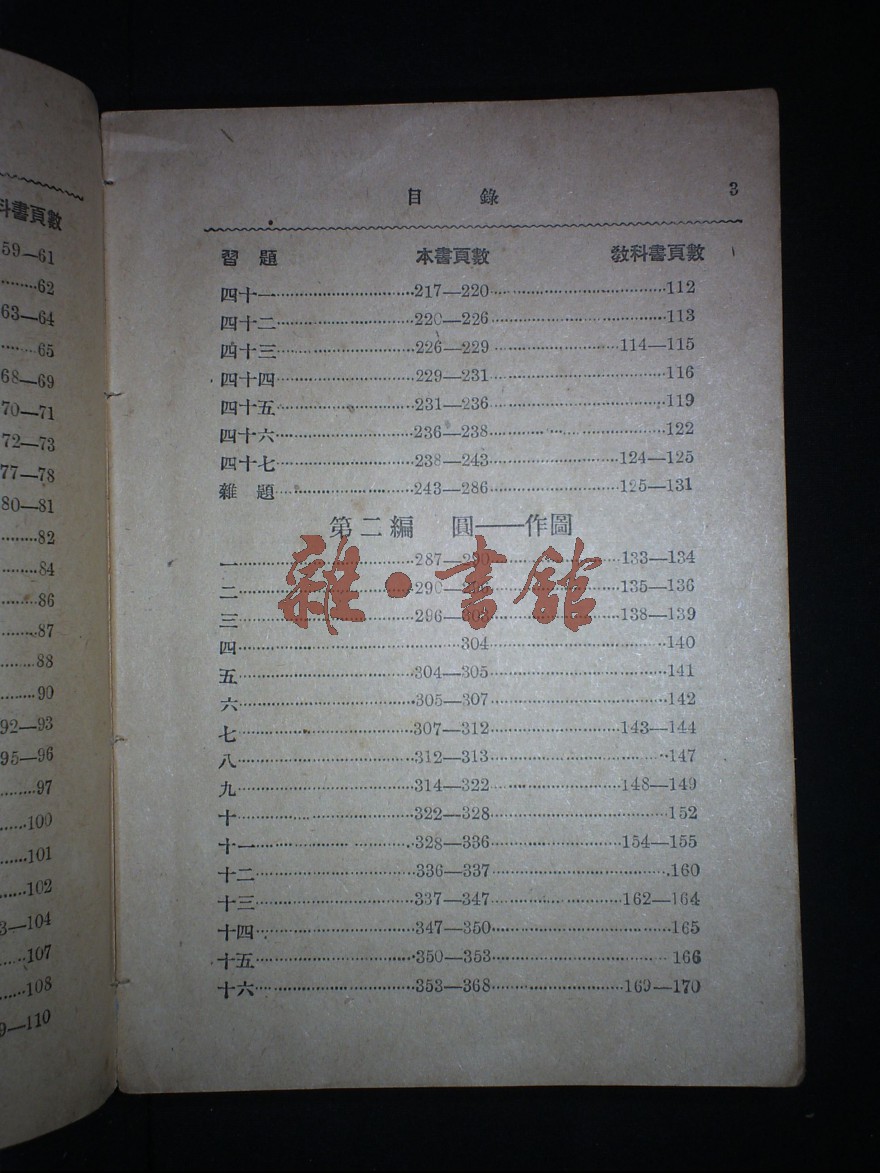 科書頁數
59—61
62
63—64
65
68—69
70—71
72—73
77—78
80—81
82
84
86
87
88
90
92—93
95—96
97
100
101
102
3—104
107
108
9—110
目 錄 3
習 題 本書頁數 教科書頁數
四十一 217—220 112
四十二 220—226 113
四十三 226—229 114—115
四十四 229—231 116
四十五 231—236 119
四十六 236—238 122
四十七 238—243 124—125
雜 題 243—286 125—131
第二編 圓——作圖
一 287—290 133—134
二 290—296 135—136
三 296—303 138—139
四 304 140
五 304—305 141
六 305—307 142
七 307—312 143—144
八 312—313 147
九 314—322 148—149
十 322—328 152
十一 328—336 154—155
十二 336—337 160
十三 337—347 162—164
十四 347—350 165
十五 350—353 166
十六 353—368 169—170
雜·書館